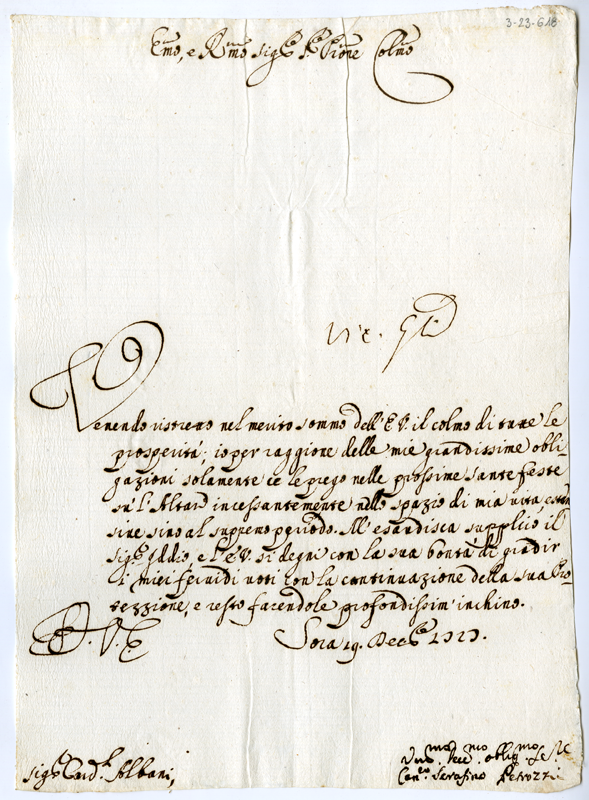 3-23-618
Emo, e Rmo Sigre Pne Pione Colmo
Venendo ristretto nel merito sommo dell' E.V. il colmo di tutte le
prosperità; io per raggione delle mie grandissime obli-
gazioni solamente ce le prego nelle prossime Sante feste
sù l'Altare incessantemente nello spazio di mia vita,
sine sino al supremo periodo. M' esaudisca supplico il
Sigre Iddio, e l'E.V. si degni con la sua bontà di gradir
i miei fervidi voti con la continuazione della sua Pro-
tezzione, e resto facendole profondissim' inchino.
D. V. E.
Sora 19. Decbre
Sigre Card. Albani,
Umo Devmo oblimo Se re
Canco Serafino Petrozzi